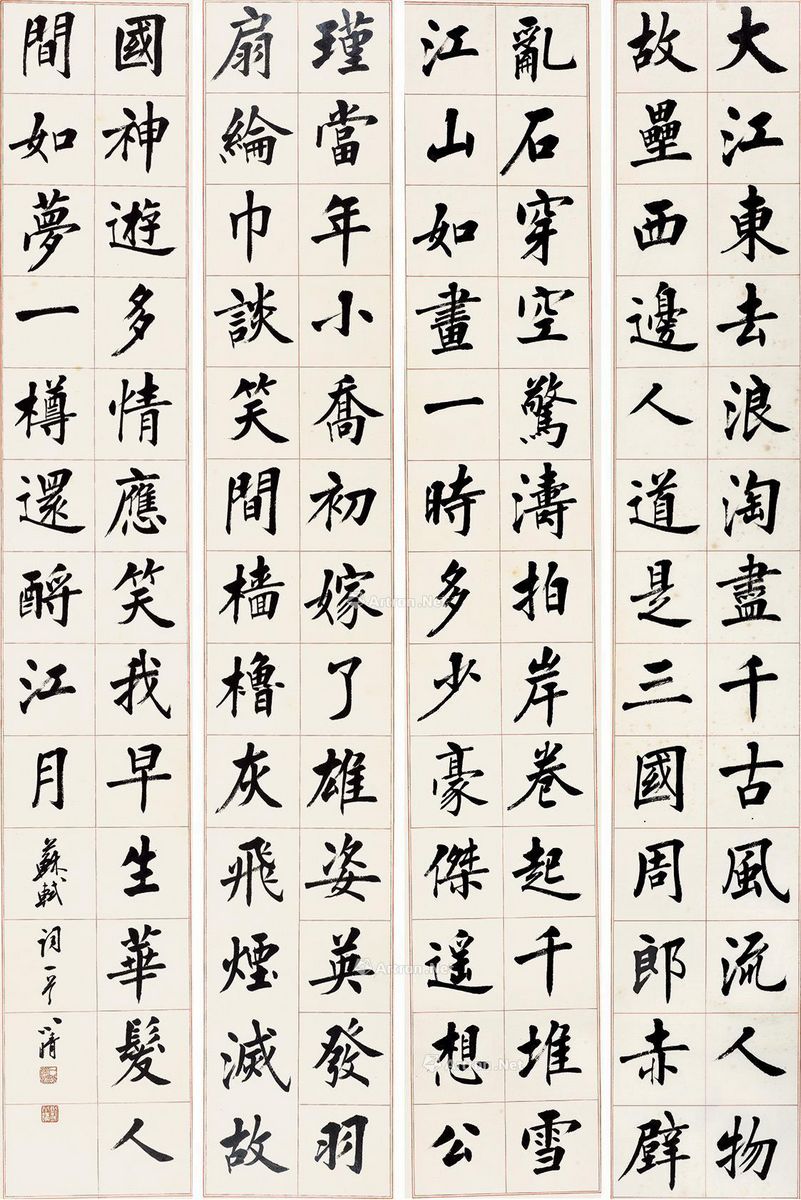 大江東去浪淘盡千古風流人物
故壘西邊人道是三國周郎赤壁
亂石穿空驚濤拍岸卷起千堆雪
江山如畫一時多少豪傑遥想公
瑾當年小喬初嫁了雄姿英發羽
扇綸巾談笑間檣櫓灰飛煙滅故
國神遊多情應笑我早生華髮人
間如夢一樽還酹江月
蘇軾詞
Artron.Net
Artron.Net
Artron.Net